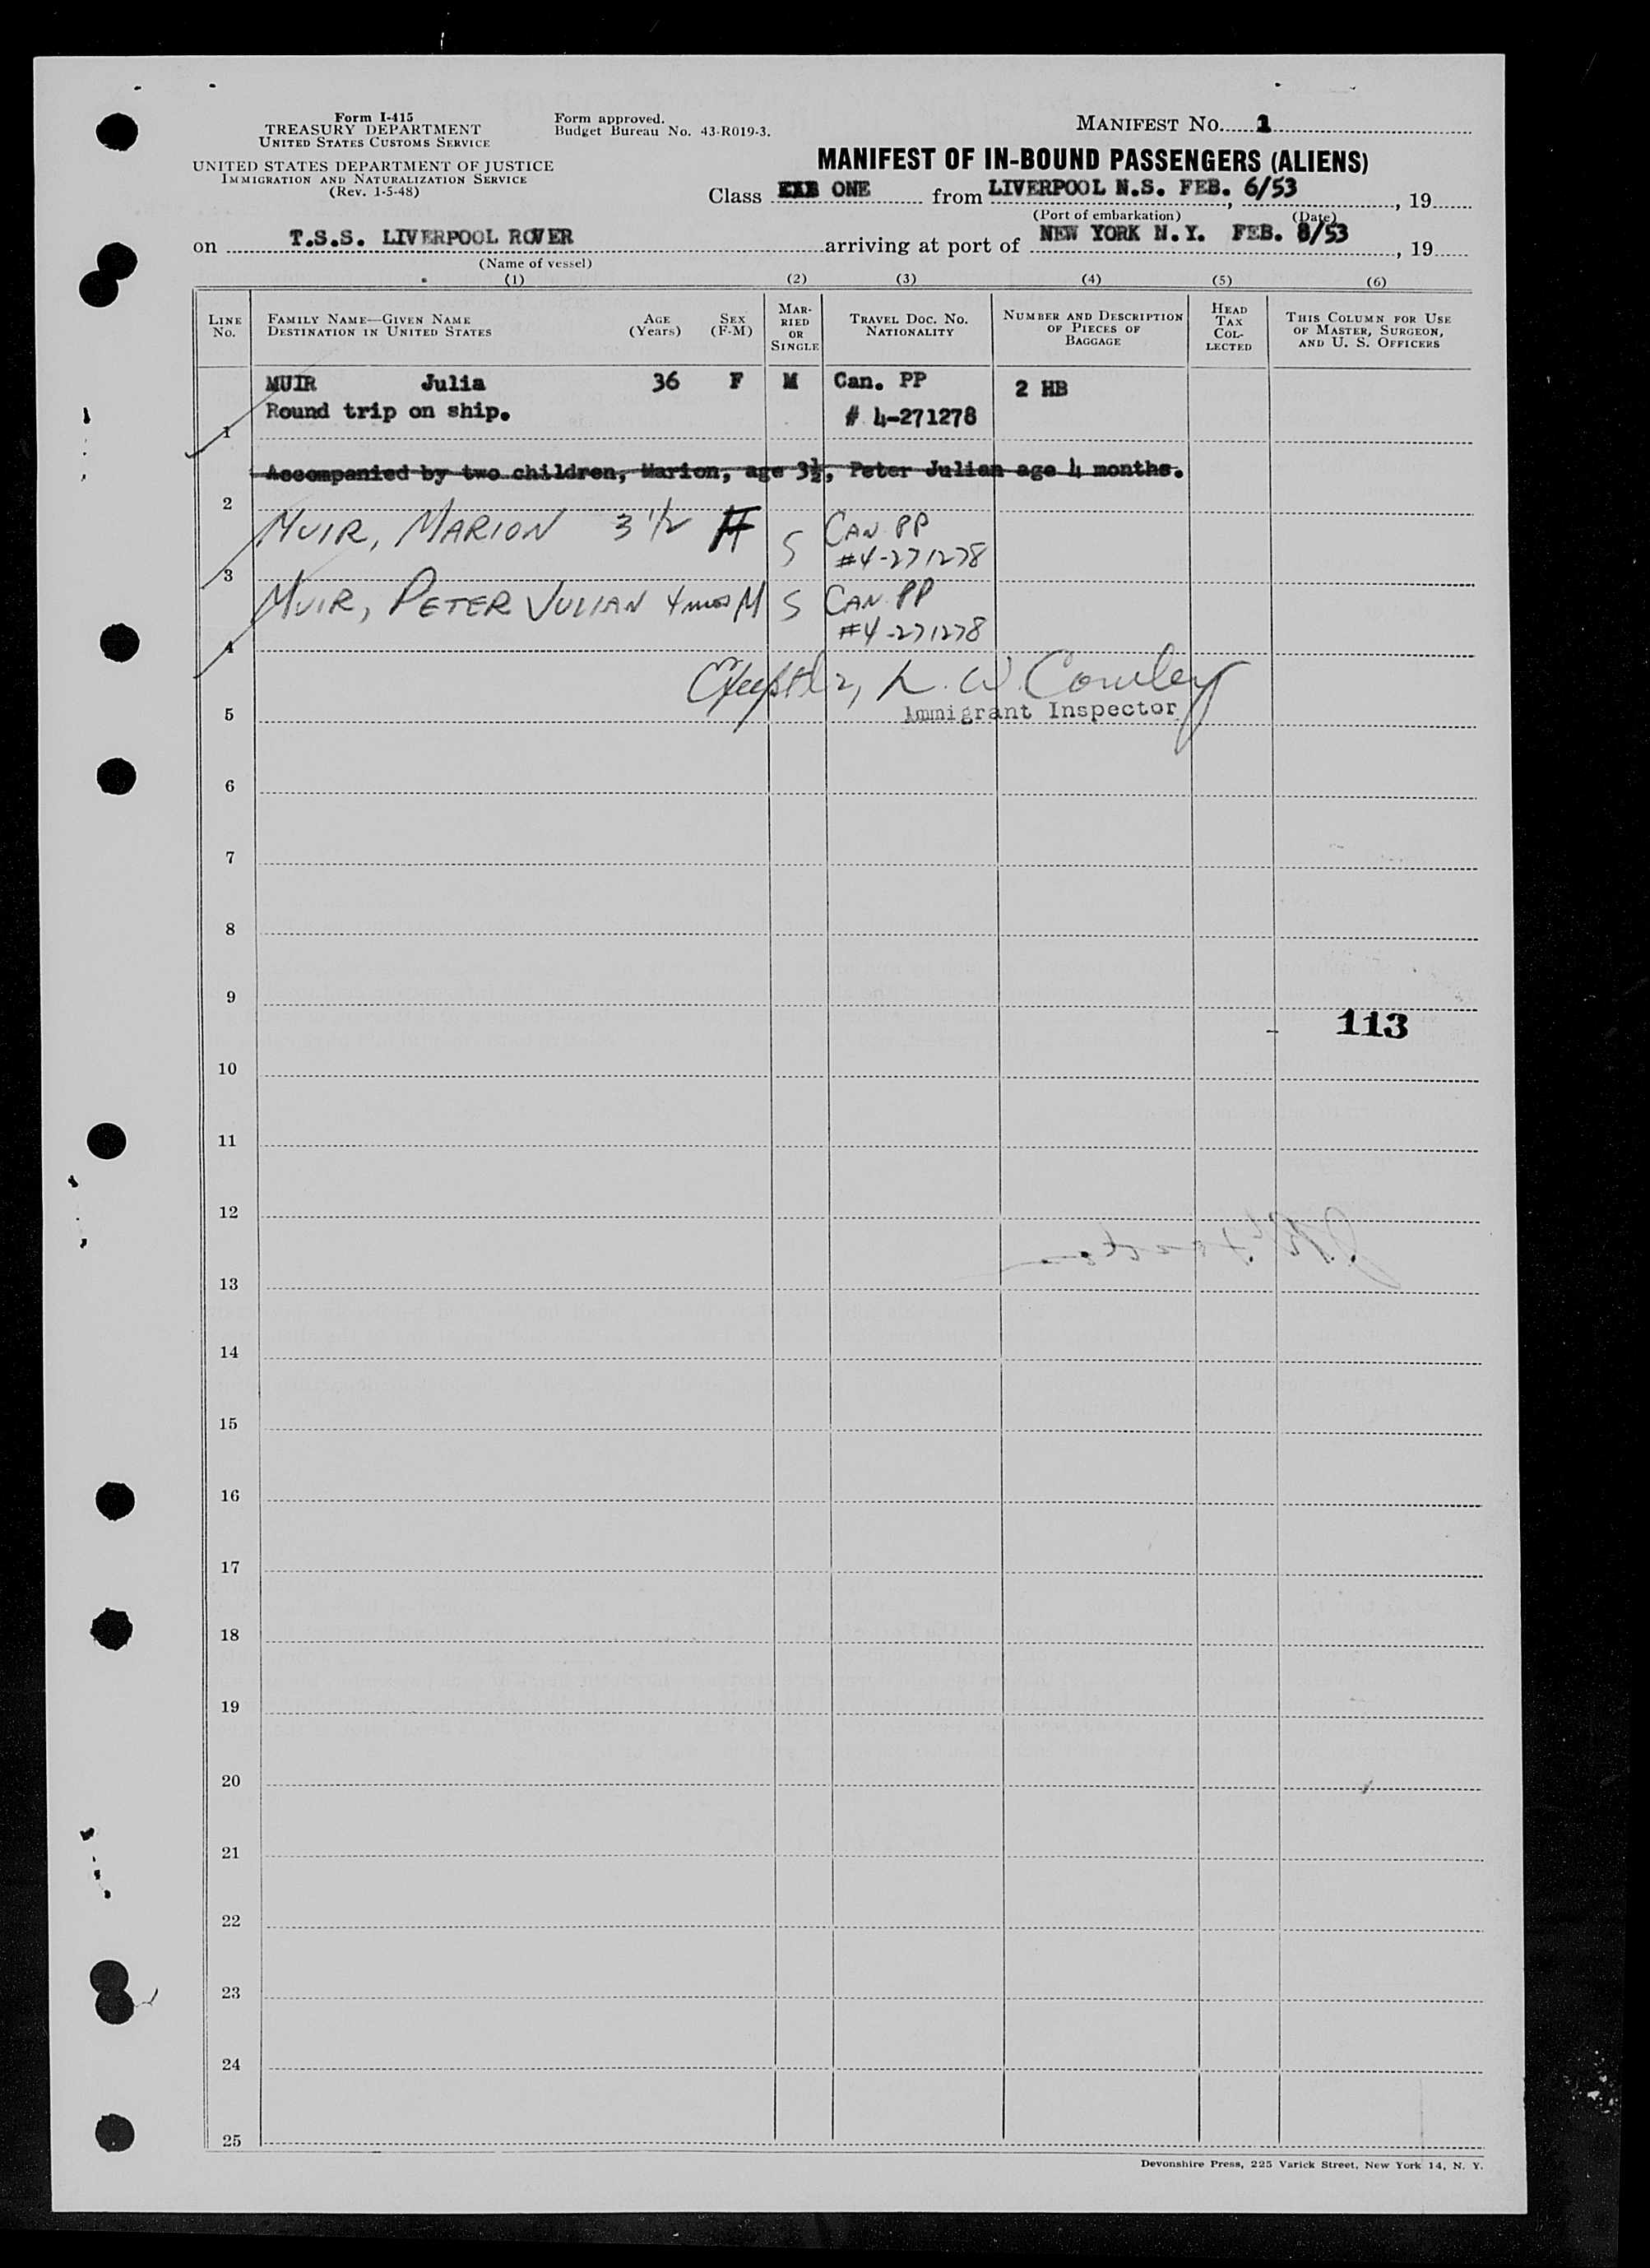 Form I-415
TREASURY DEPARTMENT
UNITED STATES CUSTOMS SERVICE
UNITED STATES DEPARTMENT OF JUSTICE
IMMIGRATION AND NATURALIZATION SERVICE
(Rev. 1-5-48)
Form approved.
Budget Bureau No. 43-R019-3.
MANIFEST NO. 1
MANIFEST OF IN-BOUND PASSENGERS (ALIENS)
Class ONE from LIVERPOOL N.S. FEB. 6/53, 19
(Port of embarkation) (Date)
on T.S.S. LIVERPOOL ROVER arriving at port of NEW YORK N.Y. FEB. 8/53, 19
(Name of vessel)
(1) (2) (3) (4) (5) (6)
LINE No. FAMILY NAME—GIVEN NAME DESTINATION IN UNITED STATES AGE (Years) SEX (F-M) MARRIED OR SINGLE TRAVEL DOC. NO. NATIONALITY NUMBER AND DESCRIPTION OF PIECES OF BAGGAGE HEAD TAX COLLECTED THIS COLUMN FOR USE OF MASTER, SURGEON, AND U. S. OFFICERS
MUIR Julia 36 F M Can. PP 2 HB
Round trip on ship. # 4-271278
1
Accompanied by two children, Marion, age 3½, Peter Julian age 4 months.
2
MUIR, MARION 3 1/2 F S CAN PP
#4-271278
3
MUIR, PETER JULIAN 4 mos M S CAN PP
#4-271278
4
L. W. Cowley
Immigrant Inspector
5
6
7
8
9
113
10
11
12
13
14
15
16
17
18
19
20
21
22
23
24
25
Devonshire Press, 225 Varick Street, New York 14, N. Y.